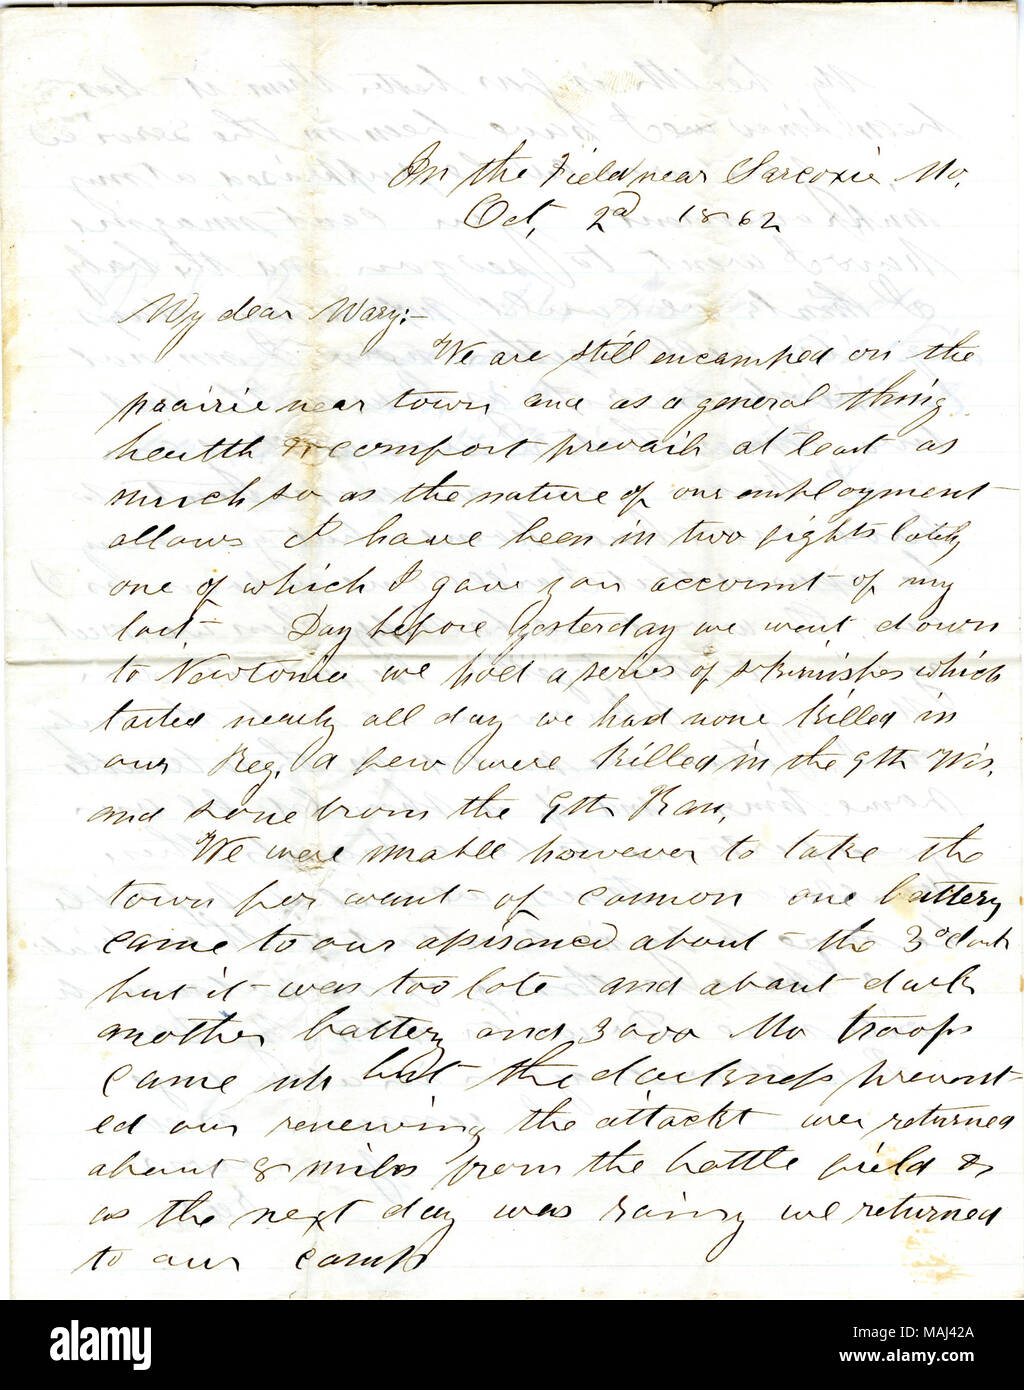 In the Field near Sarcoxie, Mo.
Oct, 2d 1862
My dear Mary:-
We are still encamped on the
prairie near town and as a general thing
health & comfort prevails at least as
much so as the nature of our employment
allows I have been in two fights lately
one of which I gave you account of my
last- Day before yesterday we went down
to Newtonia we had a series of skirmishes which
lasted nearly all day we had none killed in
our Reg. a few were killed in the 9th Wis.
and some from the 9th Kan,
We were unable however to take the
town for want of cannon one battery
came to our about the 3 oclock
but it was too late and about dark
another battery and 3000 Mo troops
came up but the darkness prevent-
ed our renewing the attackt we returned
about 8 miles from the battle field &
as the next day was rainy we returned
to our camp
alamy
alamy
Image ID: MAJ42A
www.alamy.com